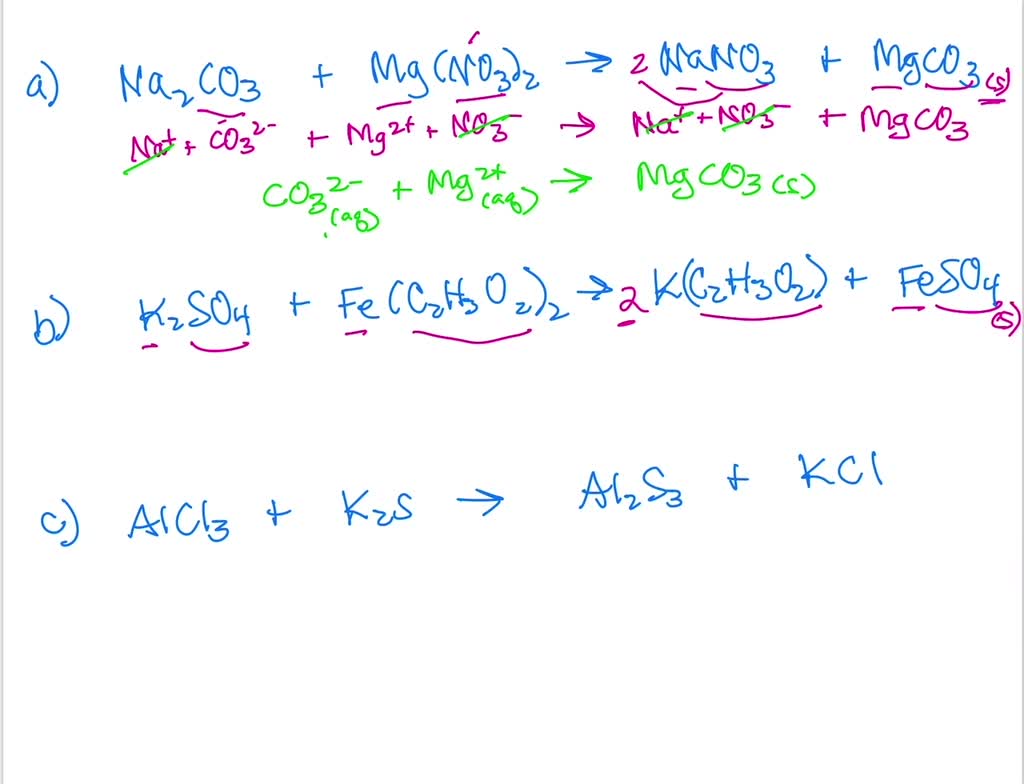 a) Na₂CO₃ + Mg(NO₃)₂ → 2 NaNO₃ + MgCO₃(s)
Na⁺ + CO₃²⁻ + Mg²⁺ + NO₃⁻ → Na⁺ + NO₃⁻ + MgCO₃
CO₃²⁻(aq) + Mg²⁺(aq) → MgCO₃(s)
b) K₂SO₄ + Fe(C₂H₃O₂)₂ → 2 K(C₂H₃O₂) + FeSO₄(s)
c) AlCl₃ + K₂S → Al₂S₃ + KCl